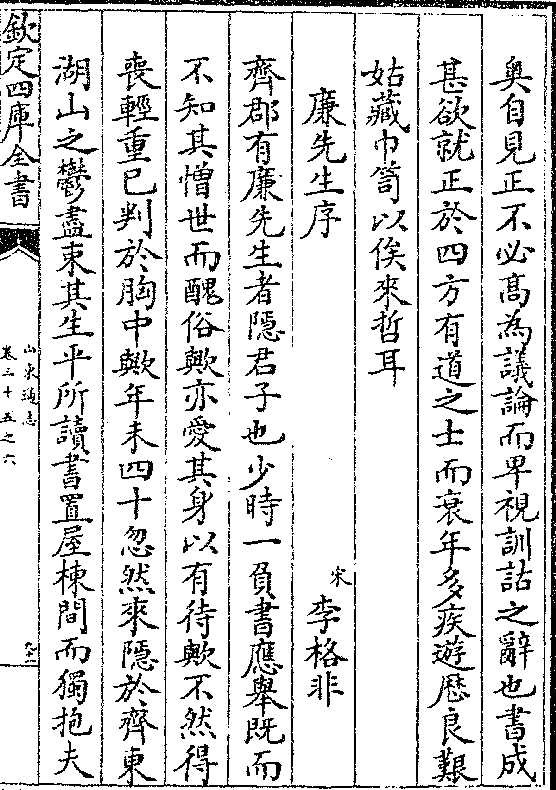 奧自見正不必髙為議論而卑視訓詁之辭也書成
甚欲就正於四方有道之士而衰年多疾遊厯良艱
姑藏巾笥以俟來哲耳
廉先生序
宋 李格非
齊郡有廉先生者隱君子也少時一負書應舉既而
不知其憎世而醜俗歟亦愛其身以有待歟不然得
喪輕重已判於胸中歟年未四十忽然來隱於齊東
湖山之鬱盡束其生平所讀書置屋棟間而獨抱夫
欽定四庫全書
山東通志
卷三十五之六